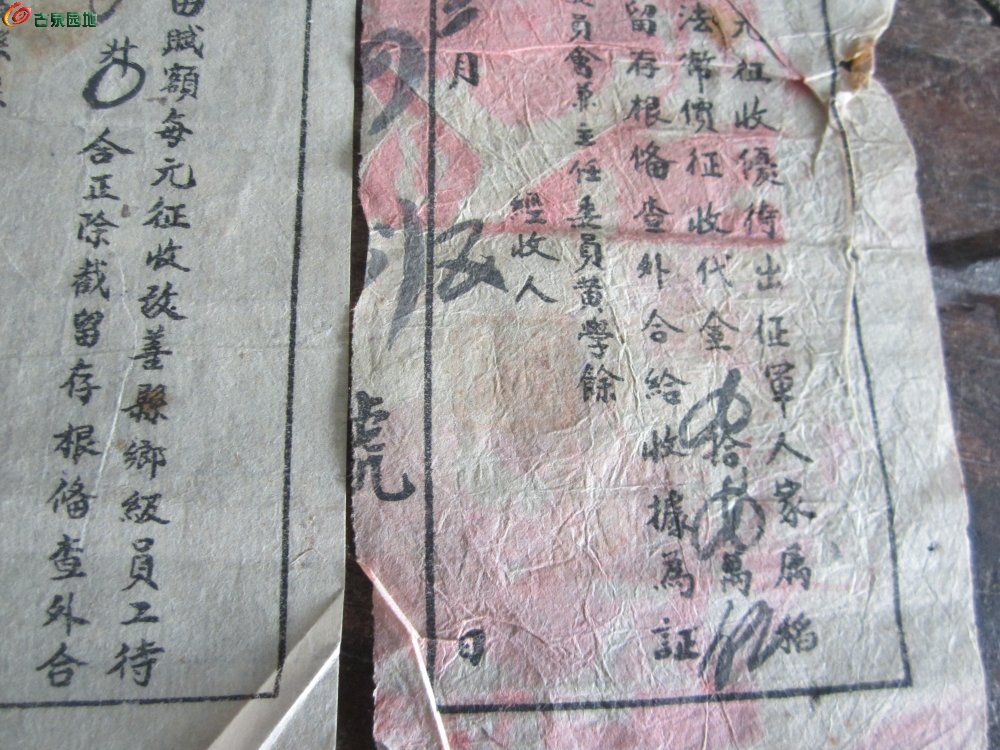 古泉园地
元征收優待出征軍人家属稻
法幣價征收代金拾萬
留存根俻查外合給收據為証
員會兼主任委員黄學餘
經收人
月 日
號
賦額每元征收改善縣鄉級員工待
合正除截留存根俻查外合